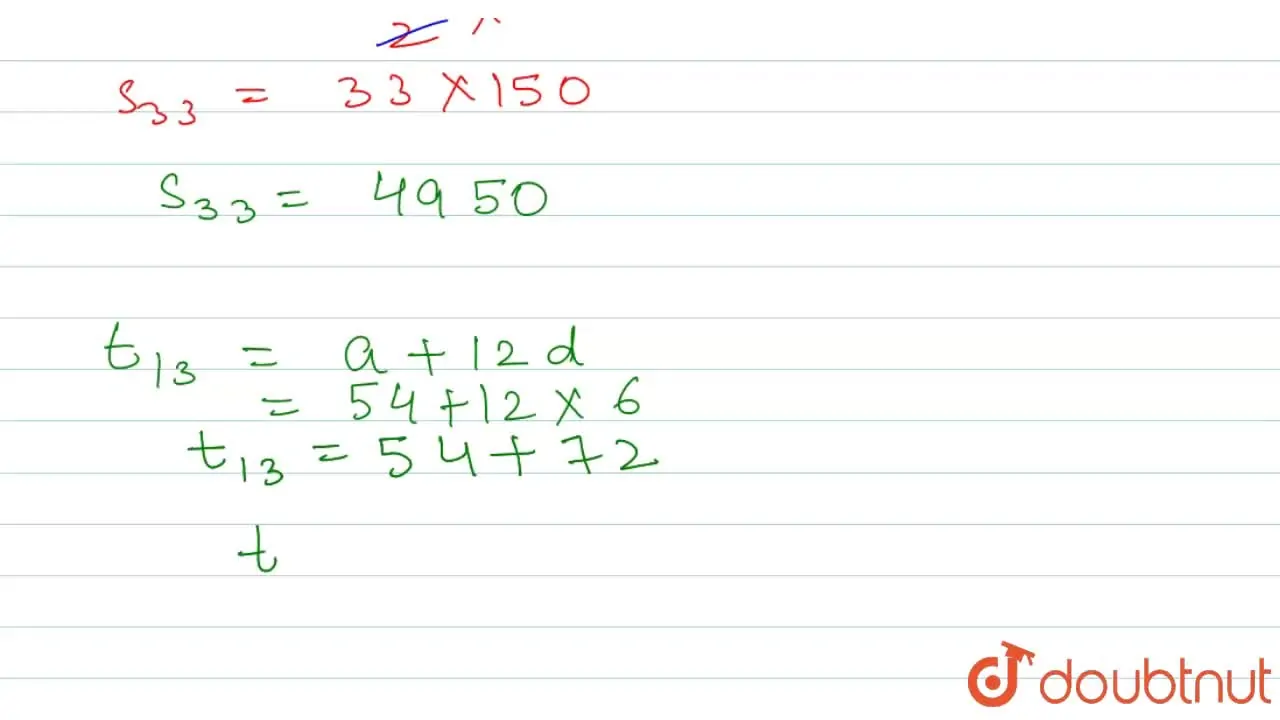 2
S₃₃ = 33 × 150
S₃₃ = 4950
t₁₃ = a + 12 d
= 54 + 12 × 6
t₁₃ = 54 + 72
t
doubtnut